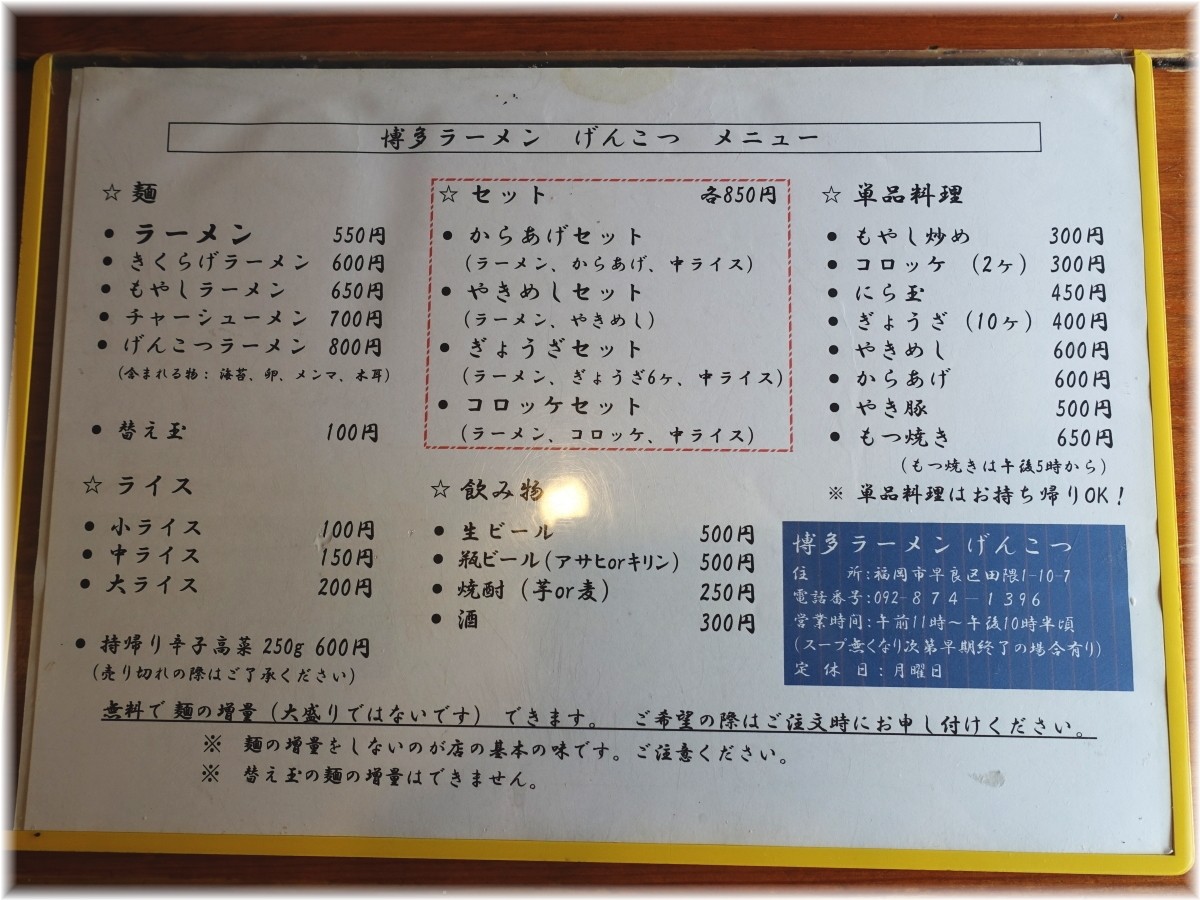 博多ラーメン げんこつ メニュー
☆ 麺
● ラーメン 550円
● きくらげラーメン 600円
● もやしラーメン 650円
● チャーシューメン 700円
● げんこつラーメン 800円
(含まれる物：海苔、卵、メンマ、木耳)
● 替え玉 100円
☆ ライス
● 小ライス 100円
● 中ライス 150円
● 大ライス 200円
● 持帰り辛子高菜 250g 600円
(売り切れの際はご了承ください)
☆ セット 各850円
● からあげセット
(ラーメン、からあげ、中ライス)
● やきめしセット
(ラーメン、やきめし)
● ぎょうざセット
(ラーメン、ぎょうざ6ヶ、中ライス)
● コロッケセット
(ラーメン、コロッケ、中ライス)
☆ 飲み物
● 生ビール 500円
● 瓶ビール(アサヒorキリン) 500円
● 焼酎 (芋or麦) 250円
● 酒 300円
☆ 単品料理
● もやし炒め 300円
● コロッケ (2ヶ) 300円
● にら玉 450円
● ぎょうざ (10ヶ) 400円
● やきめし 600円
● からあげ 600円
● やき豚 500円
● もつ焼き 650円
(もつ焼きは午後5時から)
※ 単品料理はお持ち帰りOK！
博多ラーメン げんこつ
住 所：福岡市早良区田隈1-10-7
電話番号：092-874-1396
営業時間：午前11時～午後10時半頃
(スープ無くなり次第早期終了の場合有り)
定 休 日：月曜日
無料で 麺の増量 (大盛りではないです) できます。 ご希望の際はご注文時にお申し付けください。
※ 麺の増量をしないのが店の基本の味です。ご注意ください。
※ 替え玉の麺の増量はできません。